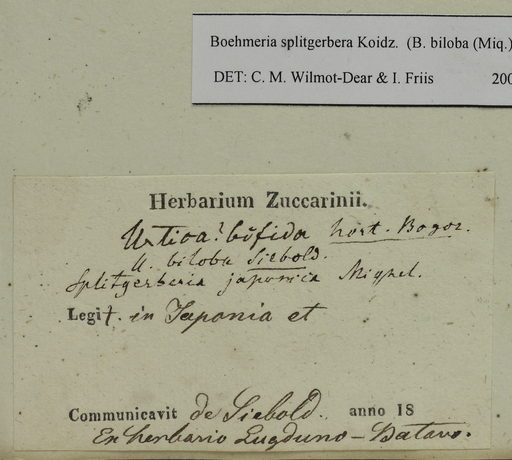 Boehmeria splitgerbera Koidz. (B. biloba (Miq.)
DET: C. M. Wilmot-Dear & I. Friis 200
Herbarium Zuccarinii.
Urtica? bifida hort. Bogor.
U. biloba Siebold.
Splitgerberia japonica Miquel.
Legit. in Japonia et
Communicavit de Siebold. anno 18
Ex herbario Lugduno-Batavo.